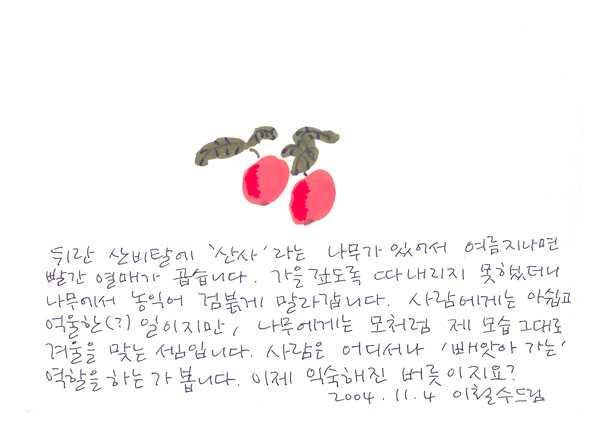 뒤란 산비탈에 '산사'라는 나무가 있어서 여름지나면
빨간 열매가 곱습니다. 가을 깊도록 따내리지 못했더니
나무에서 농익어 검붉게 말라갑니다. 사람에게는 아쉽고
억울한(?) 일이지만, 나무에게는 모처럼 제 모습 그대로
겨울을 맞는 셈입니다. 사람은 어디서나 '빼앗아 가는'
역할을 하는가 봅니다. 이제 익숙해진 버릇이지요?
2004.11.4 이철수드림